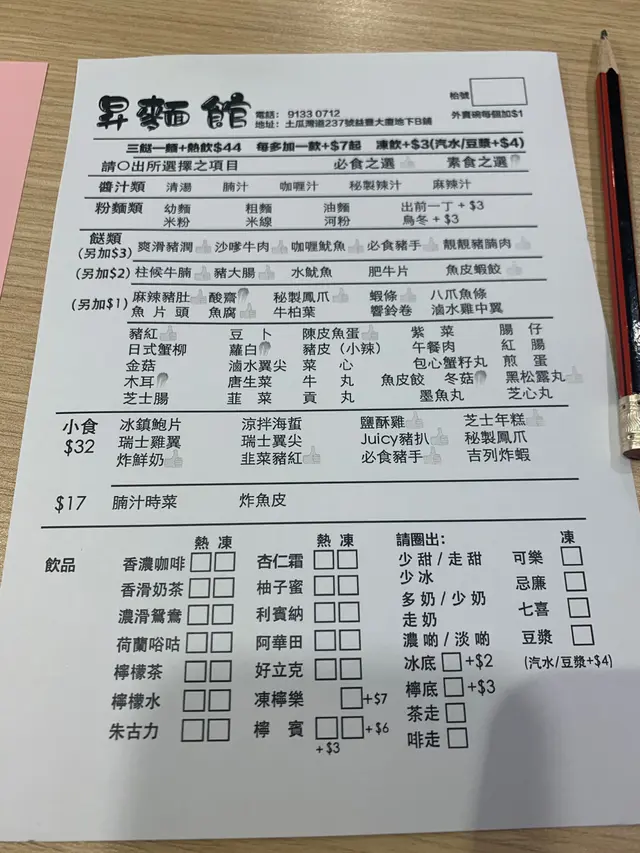 昇麵館
電話： 9133 0712
地址：土瓜灣道237號益豐大廈地下B鋪
枱號
外賣碗每個加$1
三餸一麵+熱飲$44 每多加一款+$7起 凍飲+$3(汽水/豆漿+$4)
請○出所選擇之項目 必食之選 素食之選
醬汁類 清湯 腩汁 咖喱汁 秘製辣汁 麻辣汁
粉麵類 幼麵 粗麵 油麵 出前一丁+$3
米粉 米線 河粉 烏冬+$3
餸類 爽滑豬潤 沙嗲牛肉 咖喱魷魚 必食豬手 靚靚豬腩肉
(另加$3)
(另加$2) 柱候牛腩 豬大腸 水魷魚 肥牛片 魚皮蝦餃
(另加$1) 麻辣豬肚 酸齋 秘製鳳爪 蝦條 八爪魚條
魚片頭 魚腐 牛柏葉 響鈴卷 滷水雞中翼
豬紅 豆卜 陳皮魚蛋 紫菜 腸仔
日式蟹柳 蘿白 豬皮（小辣） 午餐肉 紅腸
金菇 滷水翼尖 菜心 包心蟹籽丸 煎蛋
木耳 唐生菜 牛丸 魚皮餃 冬菇 黑松露丸
芝士腸 韮菜 貢丸 墨魚丸 芝心丸
小食 冰鎮鮑片 涼拌海蜇 鹽酥雞 芝士年糕
$32 瑞士雞翼 瑞士翼尖 Juicy豬扒 秘製鳳爪
炸鮮奶 韭菜豬紅 必食豬手 吉列炸蝦
$17 腩汁時菜 炸魚皮
飲品
熱 凍
香濃咖啡
香滑奶茶
濃滑鴛鴦
荷蘭唂咕
檸檬茶
檸檬水
朱古力
熱 凍
杏仁霜
柚子蜜
利賓納
阿華田
好立克
凍檸樂 +$7
檸賓 +$6
+$3
請圈出：
少甜/走甜
少冰
多奶/少奶
走奶
濃啲/淡啲
冰底 +$2
檸底 +$3
茶走
啡走
凍
可樂
忌廉
七喜
豆漿
(汽水/豆漿+$4)